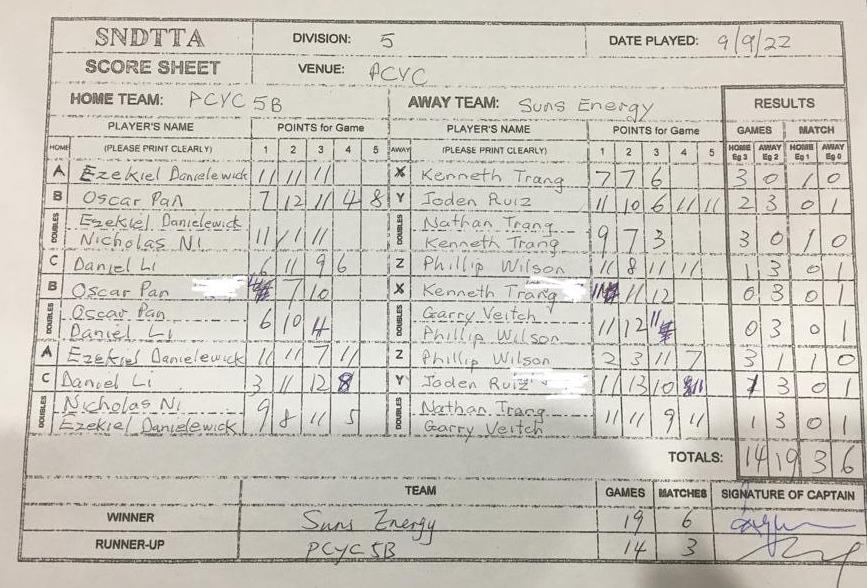 SNDTTA DIVISION: 5 DATE PLAYED: 9/9/22
SCORE SHEET VENUE: PCYC
HOME TEAM: PCYC 5B AWAY TEAM: Suns Energy RESULTS
PLAYER'S NAME POINTS for Game PLAYER'S NAME POINTS for Game GAMES MATCH
HOME (PLEASE PRINT CLEARLY) 1 2 3 4 5 AWAY (PLEASE PRINT CLEARLY) 1 2 3 4 5 HOME Eg 3 AWAY Eg 2 HOME Eg 1 AWAY Eg 0
A Ezekiel Danielewick 11 11 11 X Kenneth Trang 7 7 6 3 0 1 0
B Oscar Pan 7 12 11 4 8 Y Joden Ruiz 11 10 6 11 11 2 3 0 1
DOUBLES Ezekiel Danielewick DOUBLES Nathan Trang
Nicholas Ni 11 11 11 Kenneth Trang 9 7 3 3 0 1 0
C Daniel Li 6 11 9 6 Z Phillip Wilson 11 8 11 11 1 3 0 1
B Oscar Pan 7 10 X Kenneth Trang 11 12 0 3 0 1
DOUBLES Oscar Pan DOUBLES Garry Veitch
Daniel Li 6 10 4 Phillip Wilson 11 12 11 0 3 0 1
A Ezekiel Danielewick 11 11 7 11 Z Phillip Wilson 2 3 11 7 3 1 1 0
C Daniel Li 3 11 12 8 Y Joden Ruiz 11 13 10 11 1 3 0 1
DOUBLES Nicholas Ni DOUBLES Nathan Trang
Ezekiel Danielewick 9 8 11 5 Garry Veitch 11 11 9 11 1 3 0 1
TOTALS: 14 19 3 6
TEAM GAMES MATCHES SIGNATURE OF CAPTAIN
WINNER Suns Energy 19 6
RUNNER-UP PCYC 5B 14 3